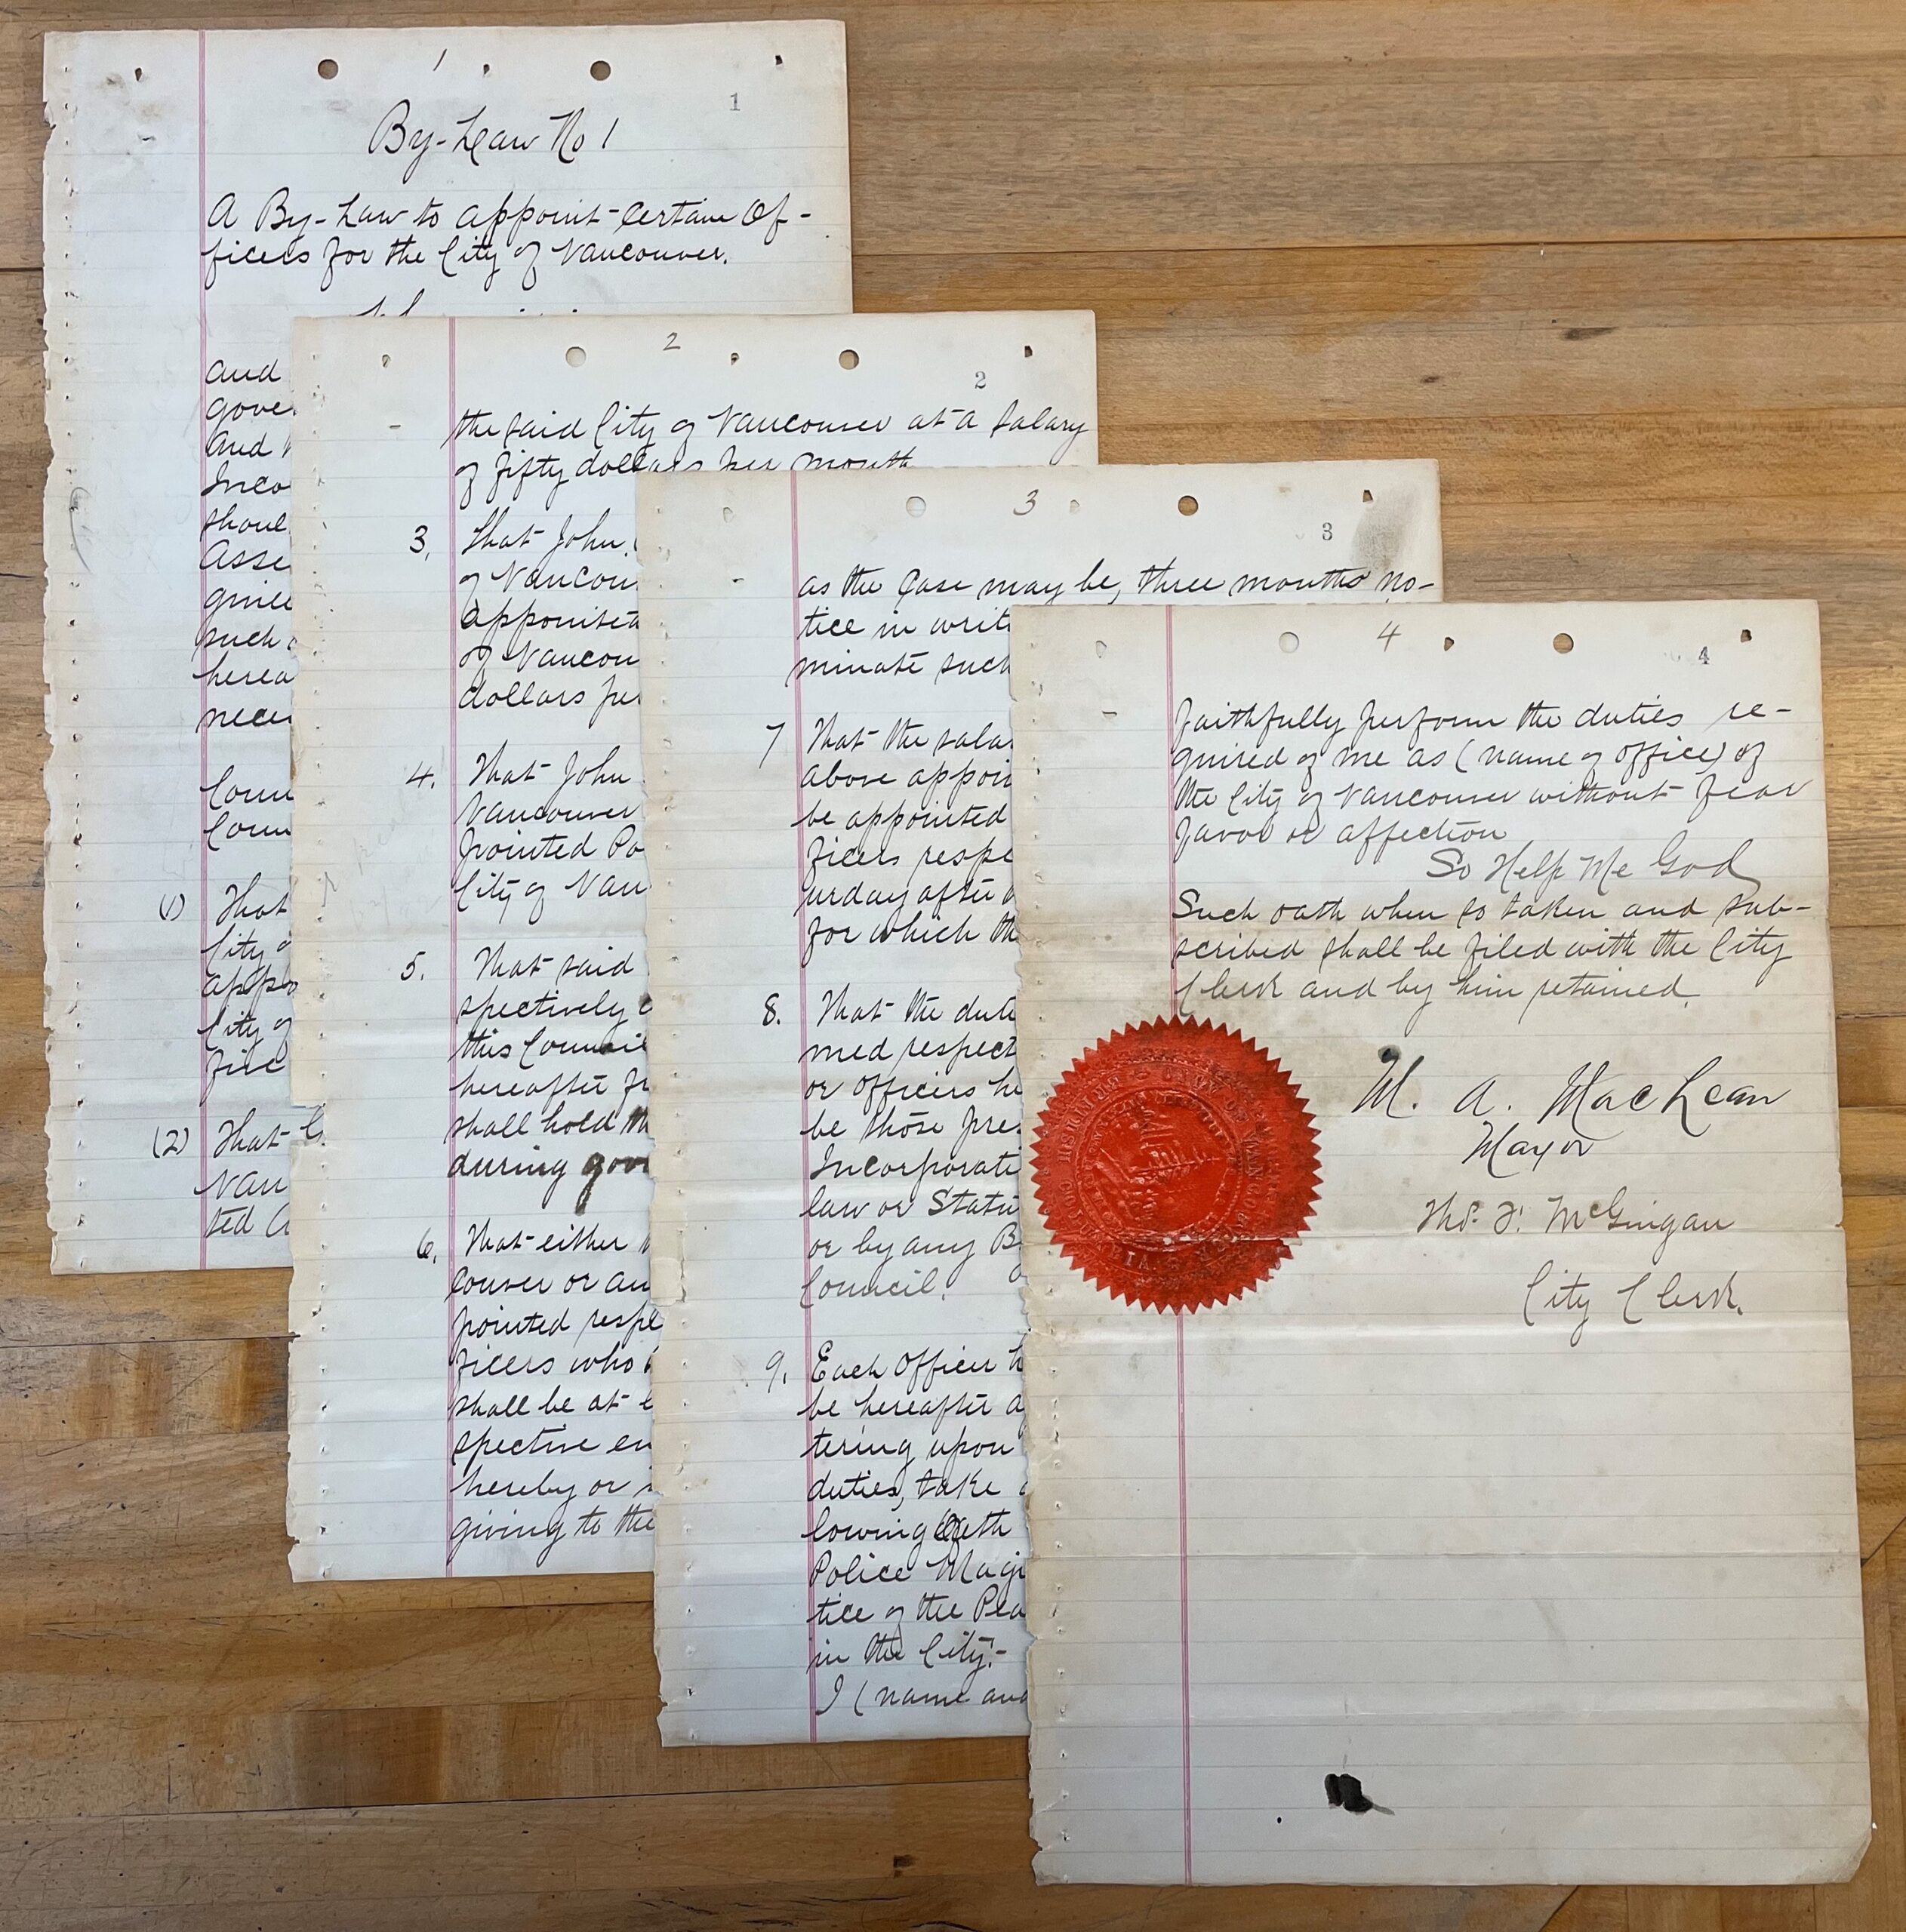 1
1
By-Law No 1
A By-Law to appoint certain Of-
ficers for the City of Vancouver.
and
gove
and
Inco
shoul
Asse
gine
such
herea
nece
Coun
Coun
(1) That
City
appo
City of
five
(2) That
Van
ted
2
2
the said City of Vancouver at a Salary
of fifty dollars per month
3. That John
of Vancou
appointed
of Vancou
dollars per
4. That John
Vancouver
pointed Po
City of Van
5. That said
spectively
this Council
hereafter fr
shall hold th
during good
6. That either
couver or an
pointed respe
ficers who
shall be at
spective en
hereby or
giving to the
3
3
as the case may be, three months no-
tice in writi
minate such
7 That the salar
above appoin
be appointed
ficers respe
urday after
for which th
8. That the duti
med respect
or officers he
be those pres
Incorporati
law or Statu
or by any B
Council.
9. Each Officer h
be hereafter a
tering upon
duties, take
lowing Oath
Police Magi
tice of the Pea
in the City:-
I (name and
4
4
faithfully perform the duties re-
quired of me as (name of office) of
the City of Vancouver without fear
favor or affection
So Help Me God
Such oath when so taken and sub-
scribed shall be filed with the City
Clerk and by him retained.
M. A. MacLean
Mayor
Thos. F. McGuigan
City Clerk.